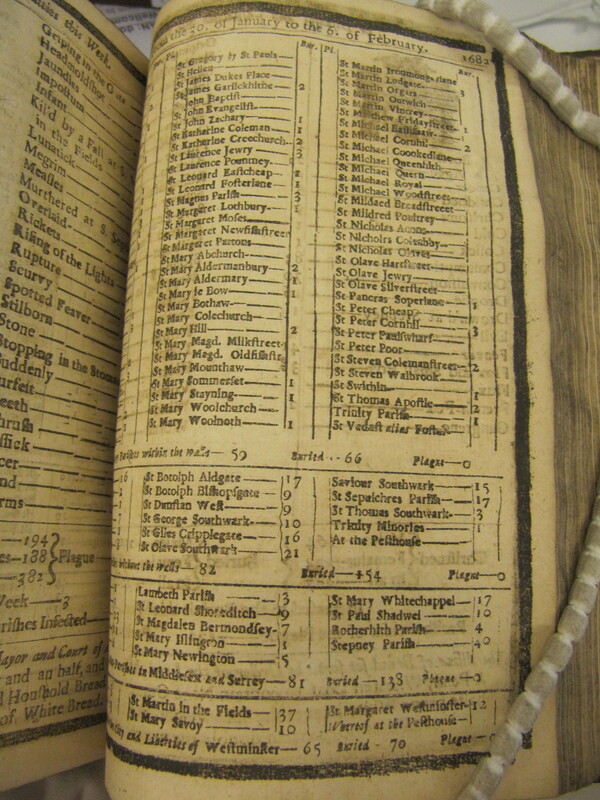 alties this Week.
Griping in the G
Headmoldshot
Jaundies
Impostum
Infant
Kil'd by a Fall
in the Fields
Lunatick
Megrim
Measles
Murthered at S.
Overlaid
Rickets
Rising of the Lights
Rupture
Scurvy
Spotted Feaver
Stilborn
Stone
Stopping in the Stoma
Suddenly
Surfeit
Teeth
Thrush
Tissick
194
188 Plague
382
Week 3
arishes Infected
Mayor and Court of
and an half, and
Houshold Bread
of White Bread
the 30. of January to the 6. of February. 168
Bur. Pl.
St Gregory by St Pauls
St Hellen
St James Dukes Place
St James Garlickhithe 2
St John Baptist
St John Evangelist
St John Zachary 1
St Katharine Coleman 1
St Katharine Creechurch 2
St Laurence Jewry 3
St Laurence Pountney
St Leonard Eastcheap 1
St Leonard Fosterlane 1
St Magnus Parish 3
St Margaret Lothbury 1
St Margaret Moses
St Margaret Newfishstreet
St Margaret Pattons
St Mary Abchurch
St Mary Aldermanbury 2
St Mary Aldermary 1
St Mary le Bow 1
St Mary Bothaw
St Mary Colechurch
St Mary Hill 2
St Mary Magd. Milkstreet
St Mary Magd. Oldfishstr
St Mary Mounthaw
St Mary Sommerset 1
St Mary Stayning 1
St Mary Woolchurch
St Mary Woolnoth 1
Bur.
St Martin Ironmongerlane
St Martin Ludgate 3
St Martin Orgars
St Martin Outwich
St Martin Vintrey
St Matthew Fridaystreet
St Michael Bassishaw
St Michael Cornhil 2
St Michael Crookedlane
St Michael Queenhith
St Michael Quern
St Michael Royal
St Michael Woodstreet
St Mildred Breadstreet
St Mildred Poultrey
St Nicholas Acons
St Nicholas Coleabby
St Nicholas Olaves
St Olave Hartstreet
St Olave Jewry
St Olave Silverstreet
St Pancras Soperlane
St Peter Cheap 1
St Peter Cornhil
St Peter Paulswharf
St Peter Poor
St Steven Colemanstreet 2
St Steven Walbrook
St Swithin 1
St Thomas Apostle 2
Trinity Parish
St Vedast alias Foster 1
Parishes within the walls 59 Buried 66 Plague 0
St Botolph Aldgate 17
St Botolph Bishopsgate 9
St Dunstan West 9
St George Southwark 10
St Giles Cripplegate 16
St Olave Southwark 21
Saviour Southwark 15
St Sepulchres Parish 17
St Thomas Southwark 3
Trinity Minories 1
At the Pesthouse
without the walls 82 Buried 154 Plague 0
Lambeth Parish 3
St Leonard Shoreditch 9
St Magdalen Bermondsey 7
St Mary Islington 1
St Mary Newington 5
St Mary Whitechappel 17
St Paul Shadwel 10
Rotherhith Parish 4
Stepney Parish
Parishes in Middlesex and Surrey 81 Buried 138 Plague
St Martin in the Fields 37
St Mary Savoy 10
St Margaret Westminster 12
Whereof at the Pesthouse
City and Liberties of Westminster 65 Buried 70 Plague 0